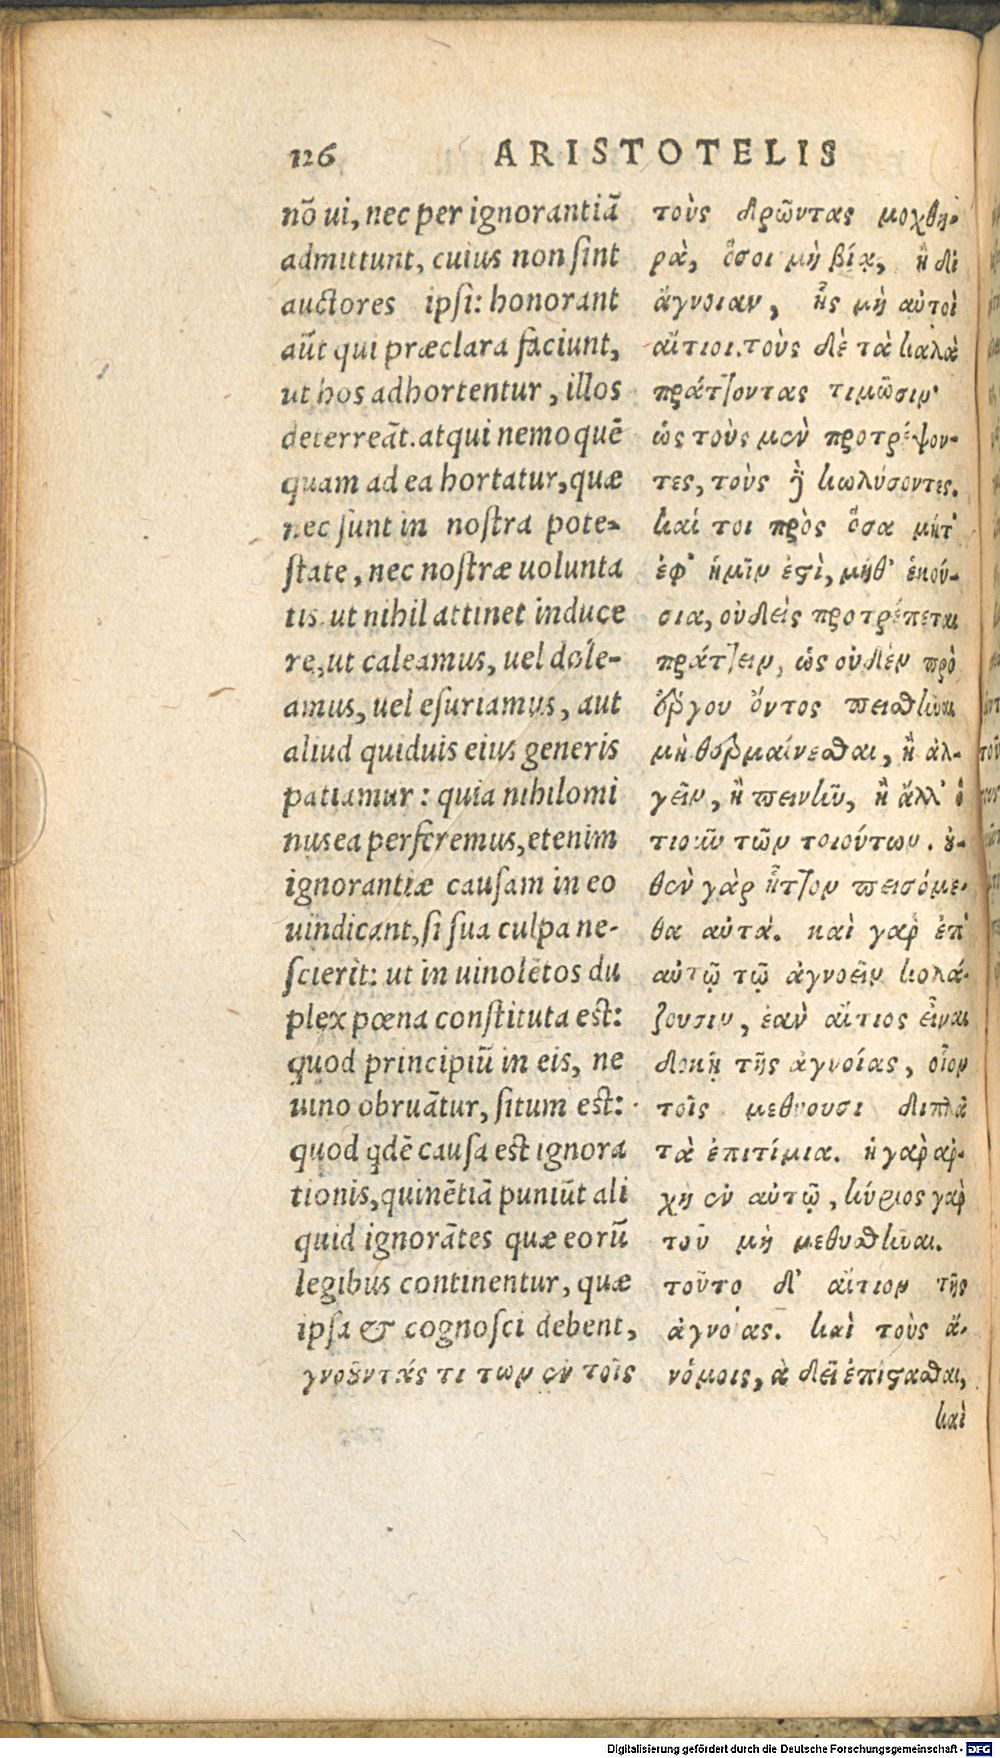 126 ARISTOTELIS
nõ ui, nec per ignorantiã
admittunt, cuius non sint
auctores ipsi: honorant
aũt qui præclara faciunt,
ut hos adhortentur, illos
deterreãt. atqui nemo quẽ
quam ad ea hortatur, quæ
nec sunt in nostra pote-
state, nec nostræ uolunta
tis. ut nihil attinet induce
re, ut caleamus, uel dole-
amus, uel esuriamus, aut
aliud quiduis eius generis
patiamur: quia nihilomi
nus ea perferemus, etenim
ignorantiæ causam in eo
uindicant, si sua culpa ne-
scierit: ut in uinolẽtos du
plex pœna constituta est:
quod principiũ in eis, ne
uino obruãtur, situm est:
quod qdẽ causa est ignora
tionis, quinẽtiã puniũt ali
quid ignorãtes quæ eorũ
legibus continentur, quæ
ipsa & cognosci debent,
τοὺς δρῶντας μοχθη-
ρὰ, ὅσοι μὴ βίᾳ, ἢ δι
ἄγνοιαν, ἧς μὴ αὐτοὶ
αἴτιοι. τοὺς δὲ τὰ καλὰ
πράττοντας τιμῶσιν·
ὡς τοὺς μὲν προτρέψον-
τες, τοὺς δὲ κωλύσοντες.
καί τοι πρὸς ὅσα μήτ'
ἐφ' ἡμῖν ἐστὶ, μήθ' ἑκού-
σια, οὐδεὶς προτρέπεται
πράττειν, ὡς οὐδὲν πρὸ
ἔργου ὄντος πεισθῆναι
μὴ θερμαίνεσθαι, ἢ ἀλ-
γεῖν, ἢ πεινῆν, ἢ ἄλλ' ὁ
τιοῦν τῶν τοιούτων. ου-
θὲν γὰρ ἧττον πεισόμε-
θα αὐτά. καὶ γὰρ ἐπ'
αὐτῷ τῷ ἀγνοεῖν κολά-
ζουσιν, ἐὰν αἴτιος εἶναι
δοκῇ τῆς ἀγνοίας, οἷον
τοῖς μεθύουσι διπλᾶ
τὰ ἐπιτίμια. ἡ γὰρ ἀρ-
χὴ ἐν αὐτῷ, κύριος γὰρ
τοῦ μὴ μεθυσθῆναι.
τοῦτο δ' αἴτιον τῆς
ἀγνοίας. καὶ τοὺς ἀ-
γνοοῦντάς τι των ἐν τοῖς νόμοις, ἃ δεῖ ἐπίστασθαι,
καὶ
Digitalisierung gefördert durch die Deutsche Forschungsgemeinschaft - DFG